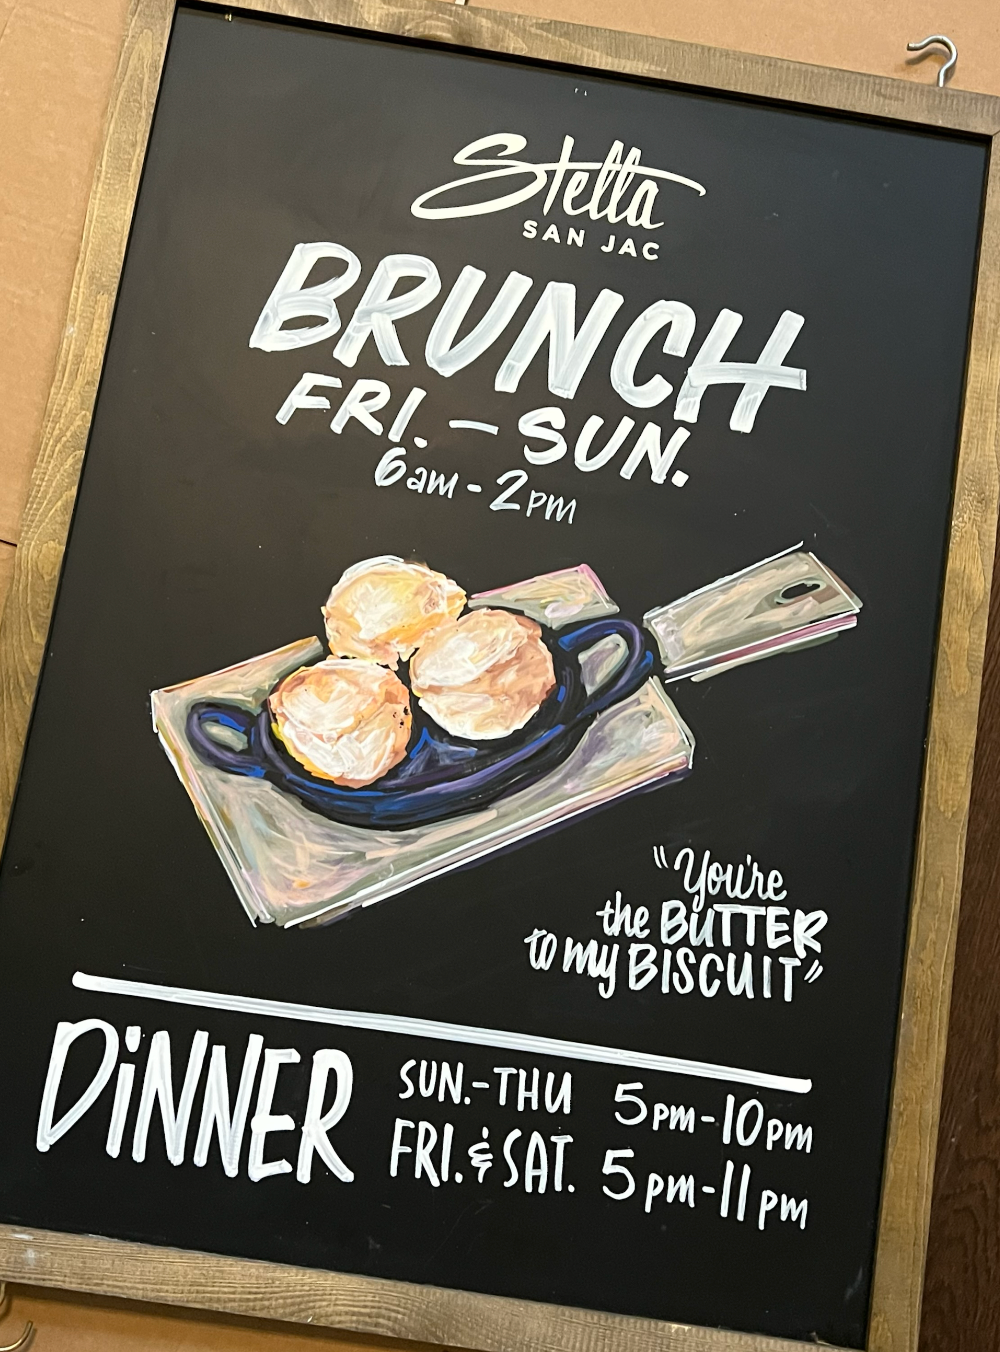 Stella
SAN JAC
BRUNCH
FRI. - SUN.
6am - 2pm
"You're
the BUTTER
to my BISCUIT"
DiNNER
SUN.-THU 5pm-10pm
FRI. & SAT. 5pm-11pm